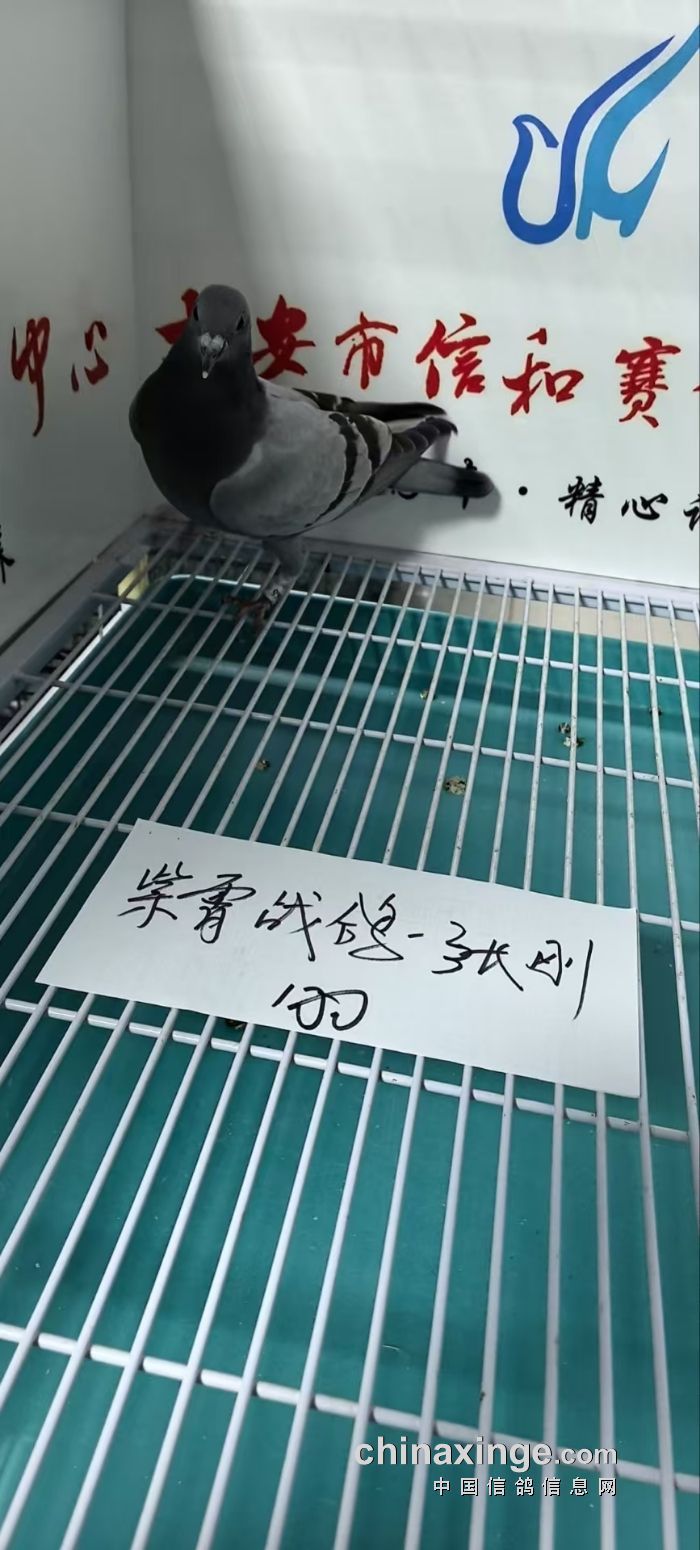 中心
安市信和赛
·精心
紫霄战鸽-张刚
的
chinaxinge.com
中国信鸽信息网